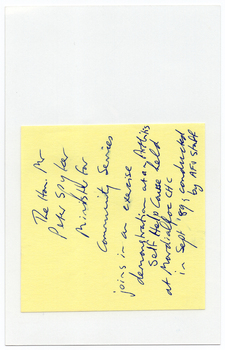 The Hon. Mr
Peter Spyker
Minister for
Community Services
joins in an exercise
demonstration at an Arthritis
Self Help Course held
at Mordialloc CHC
in Sept '89, conducted
by AFV Staff